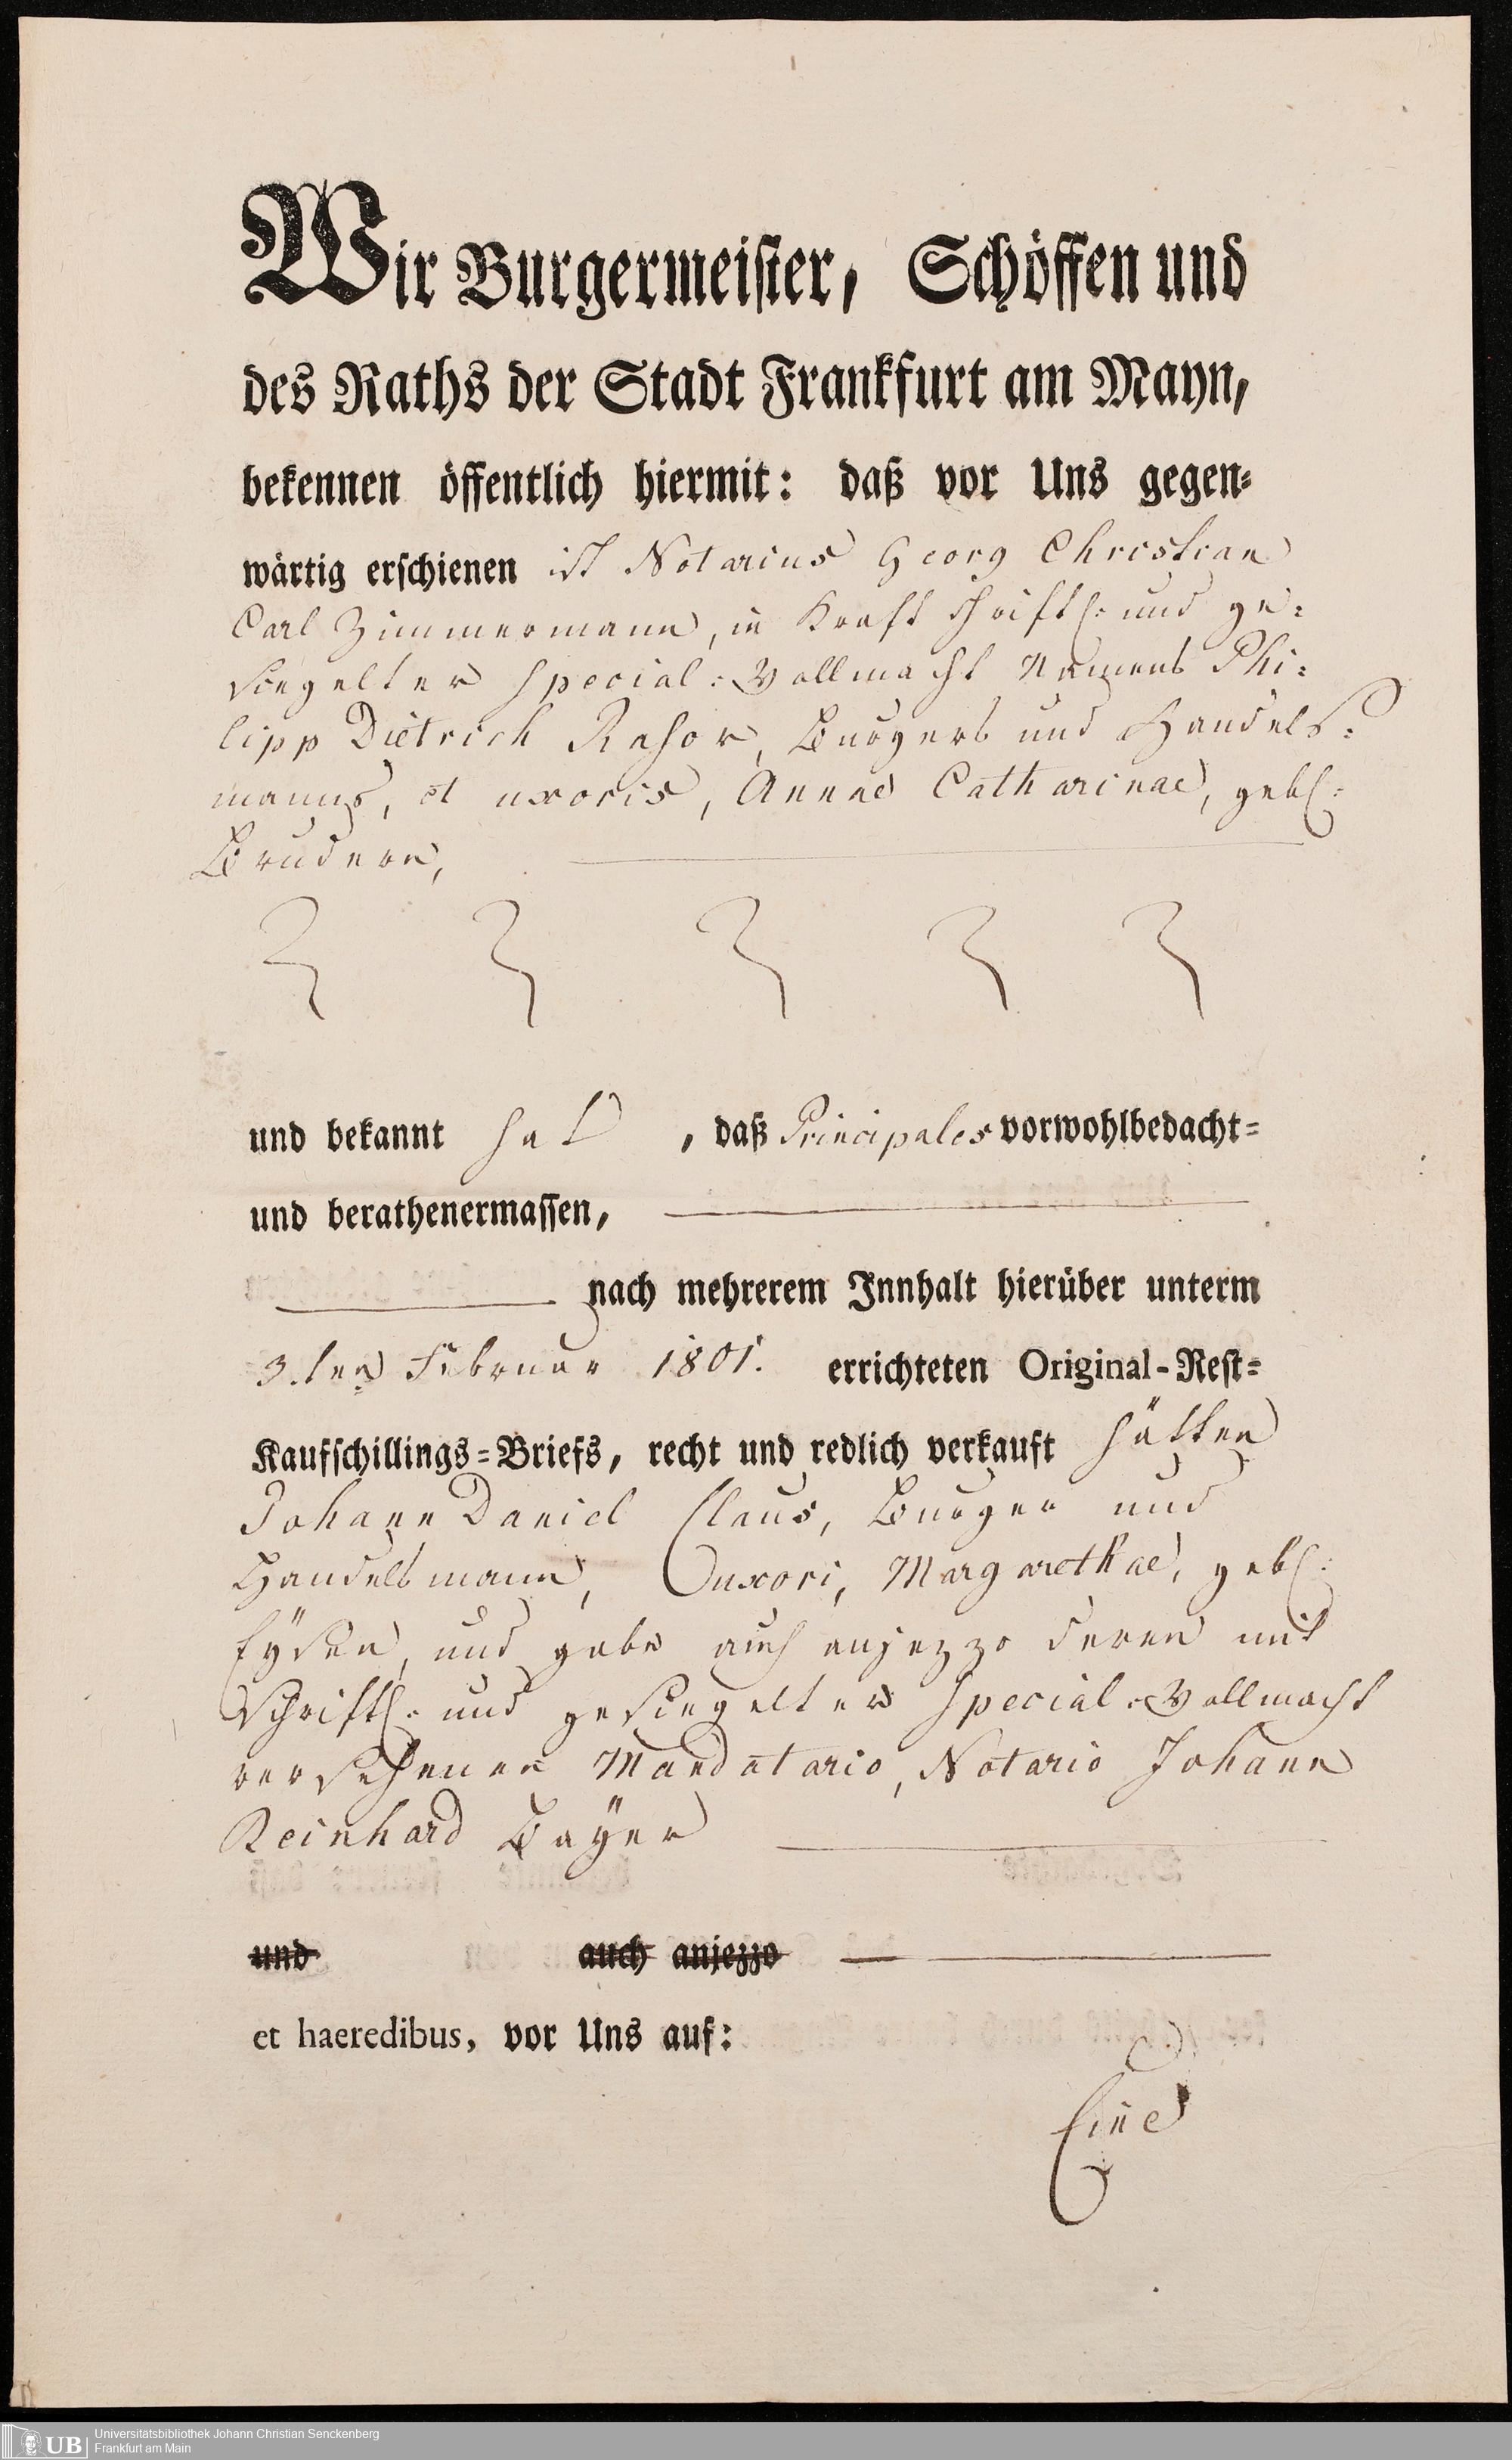 Wir Burgermeister, Schöffen und
des Raths der Stadt Frankfurt am Mayn,
bekennen öffentlich hiermit: daß vor Uns gegen-
wärtig erschienen ist Notarius Georg Christian
Carl Zimmermann, in Kraft schriftl: und ge-
siegelter Special-Vollmacht Namens Phi-
lipp Dietrich Rasor, Burgers und Handels-
manns, et uxoris, Annae Catharinae, gebl:
Brudern,
und bekannt hat, daß Principales vorwohlbedacht-
und berathenermassen,
nach mehrerem Innhalt hierüber unterm
3.ten Februar 1801. errichteten Original-Rest-
Kaufschillings-Briefs, recht und redlich verkauft hätten
Johann Daniel Claus, Burger und
Handelsmann, uxori, Margarethae, gebl:
und gebe auch anjezzo deren mit
Schriftl: und gesiegelter Special-Vollmacht
versehenen Mandatario, Notario Johann
Reinhard Bayer
und auch anjezzo
et haeredibus, vor Uns auf:
Eine
UB
Universitätsbibliothek Johann Christian Senckenberg
Frankfurt am Main